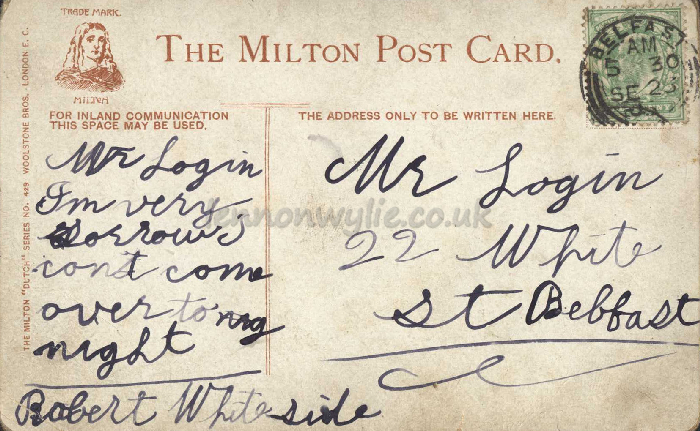 TRADE MARK.
MILTON
THE MILTON POST CARD.
BELFAST
AM
5 30
SE 23
FOR INLAND COMMUNICATION
THIS SPACE MAY BE USED.
THE ADDRESS ONLY TO BE WRITTEN HERE
THE MILTON "DUTCH" SERIES NO. 449 WOOLSTONE BROS., LONDON E. C.
Mr Login
I'm very
Sorrow's
cont come
over to nig
night
Robert White side
Mr Login
22 White
St Belbfast
lennonwylie.co.uk